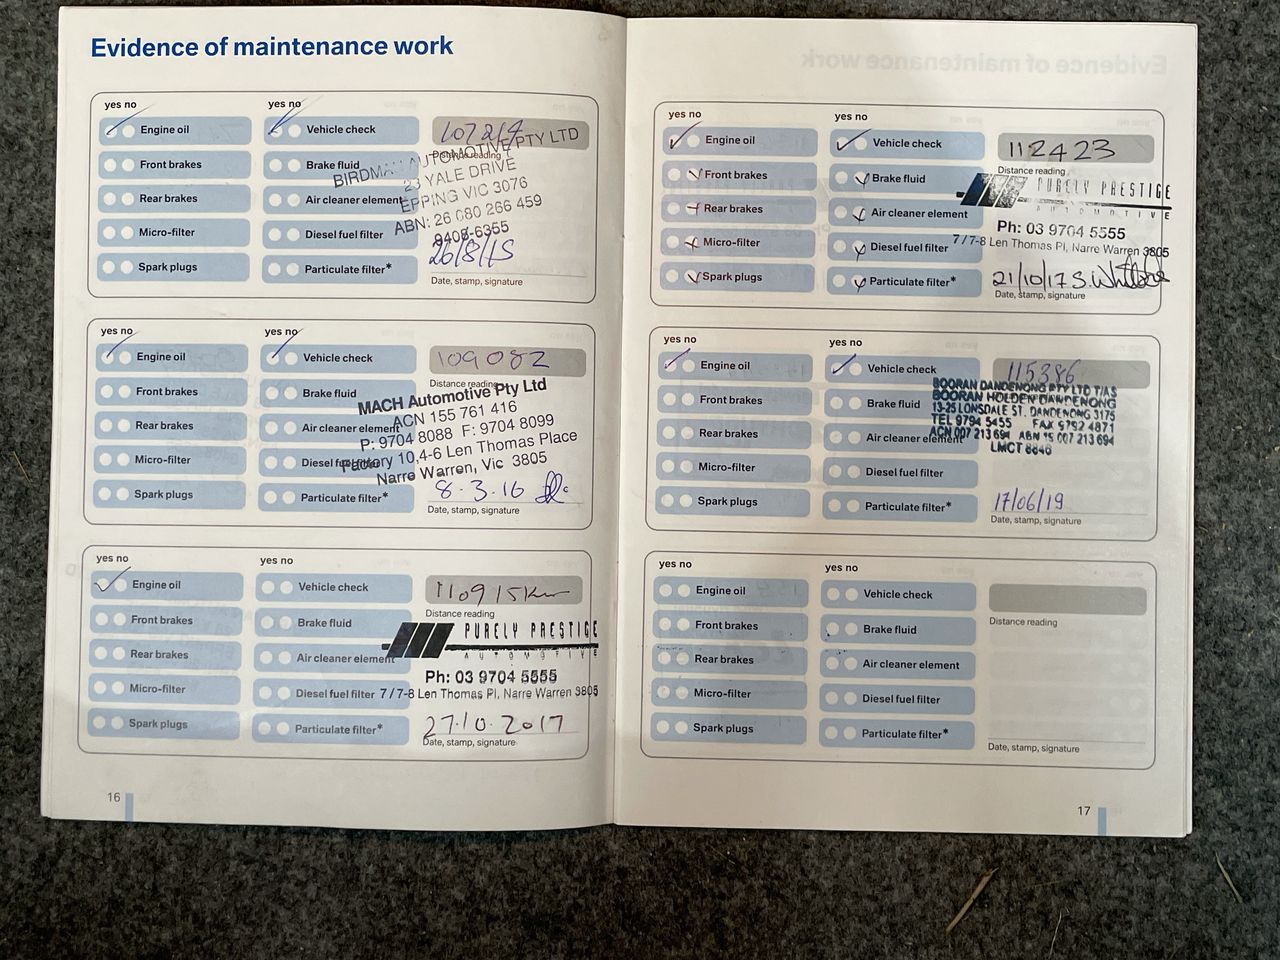 Evidence of maintenance work
yes no
yes no
Engine oil
Vehicle check
Front brakes
Brake fluid
Distance reading
Rear brakes
Air cleaner element
Micro-filter
Diesel fuel filter
Spark plugs
Particulate filter*
BIRDMAN AUTOMOTIVE PTY LTD
23 YALE DRIVE
EPPING VIC 3076
ABN: 26 080 266 459
9408-6355
26/8/15
Date, stamp, signature
yes no
yes no
Engine oil
Vehicle check
109082
Front brakes
Brake fluid
Distance reading
Rear brakes
Air cleaner element
Micro-filter
Diesel fuel filter
Spark plugs
Particulate filter*
MACH Automotive Pty Ltd
ACN 155 761 416
P: 9704 8088 F: 9704 8099
Factory 10,4-6 Len Thomas Place
Narre Warren, Vic 3805
8.3.16
Date, stamp, signature
yes no
yes no
Engine oil
Vehicle check
110915km
Front brakes
Brake fluid
Distance reading
Rear brakes
Air cleaner element
Micro-filter
Diesel fuel filter
Spark plugs
Particulate filter*
PURELY PRESTIGE
AUTOMOTIVE
Ph: 03 9704 5555
7/7-8 Len Thomas Pl, Narre Warren 3805
27.10.2017
Date, stamp, signature
16
yes no
yes no
Engine oil
Vehicle check
112423
Front brakes
Brake fluid
Distance reading
Rear brakes
Air cleaner element
Micro-filter
Diesel fuel filter
Spark plugs
Particulate filter*
PURELY PRESTIGE
AUTOMOTIVE
Ph: 03 9704 5555
7/7-8 Len Thomas Pl, Narre Warren 3805
21/10/17
Date, stamp, signature
yes no
yes no
Engine oil
Vehicle check
115386
Front brakes
Brake fluid
Rear brakes
Air cleaner element
Micro-filter
Diesel fuel filter
Spark plugs
Particulate filter*
BOORAN DANDENONG PTY LTD T/AS
BOORAN HOLDEN DANDENONG
13-25 LONSDALE ST. DANDENONG 3175
TEL 9794 5455 FAX 9792 4871
ACN 007 213 694 ABN 15 007 213 694
LMCT 8846
17/06/19
Date, stamp, signature
yes no
yes no
Engine oil
Vehicle check
Front brakes
Brake fluid
Distance reading
Rear brakes
Air cleaner element
Micro-filter
Diesel fuel filter
Spark plugs
Particulate filter*
Date, stamp, signature
17